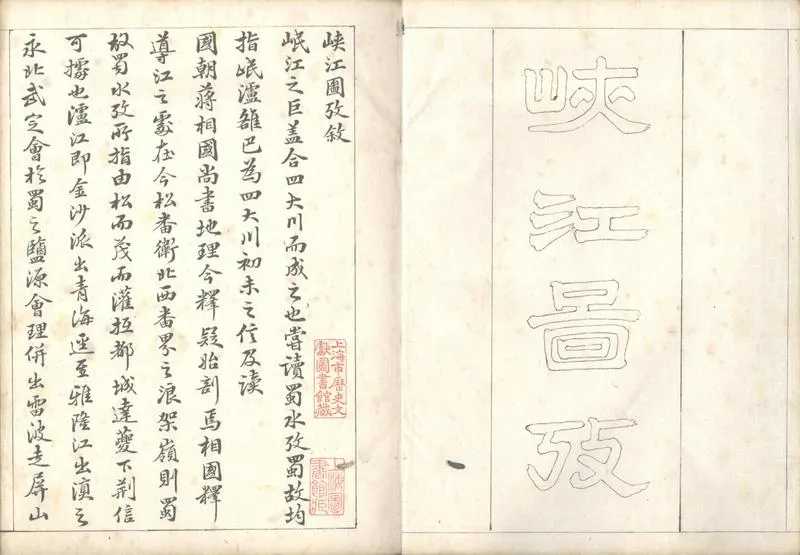 峽江啚攷
峽江圖攷敘
岷江之巨盖合四大川而成之也嘗讀蜀水攷蜀故均
指岷瀘雒巴為四大川初未之信及讀
國朝蔣相國尚書地理今釋疑始剖焉相國釋
導江之處在今松番衛北西番界之浪架嶺則蜀
故蜀水攷所指由松而茂而灌抵都城達夔下荆信
可據也瀘江即金沙派出青海逕至雅隆江出滇之
永北武定會於蜀之鹽源會理併出雷波走屏山
上海市歷史文
獻圖書館藏
上海圖
書館藏